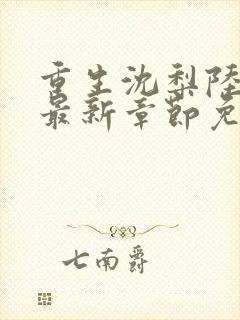 重生沈梨陸
最新章節免
七南爵